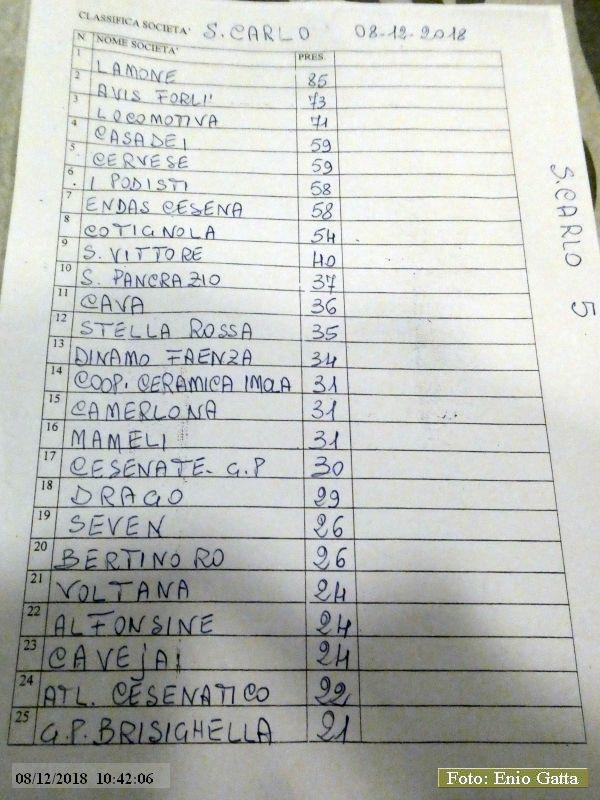 CLASSIFICA SOCIETA' S. CARLO 08-12-2018
N NOME SOCIETA' PRES.
1 LAMONE 85
2 AVIS FORLI' 73
3 LOCOMOTIVA 71
4 CASADEI 59
5 CERVESE 59
6 I PODISTI 58
7 ENDAS CESENA 58
8 COTIGNOLA 54
9 S. VITTORE 40
10 S. PANCRAZIO 37
11 CAVA 36
12 STELLA ROSSA 35
13 DINAMO FAENZA 34
14 COOP. CERAMICA IMOLA 31
15 CAMERLONA 31
16 MAMELI 31
17 CESENATE G.P 30
18 DRAGO 29
19 SEVEN 26
20 BERTINORO 26
21 VOLTANA 24
22 ALFONSINE 24
23 CAVEJAI 24
24 ATL. CESENATICO 22
25 G.P. BRISIGHELLA 21
S. CARLO 5
08/12/2018 10:42:06
Foto: Enio Gatta